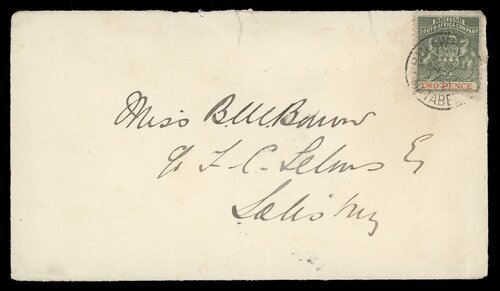 BRITISH
SOUTH AFRICA COMPANY
TWO PENCE
TABE
Miss B.M. Barrow
c/o F. C. Selous Esq
Salisbury